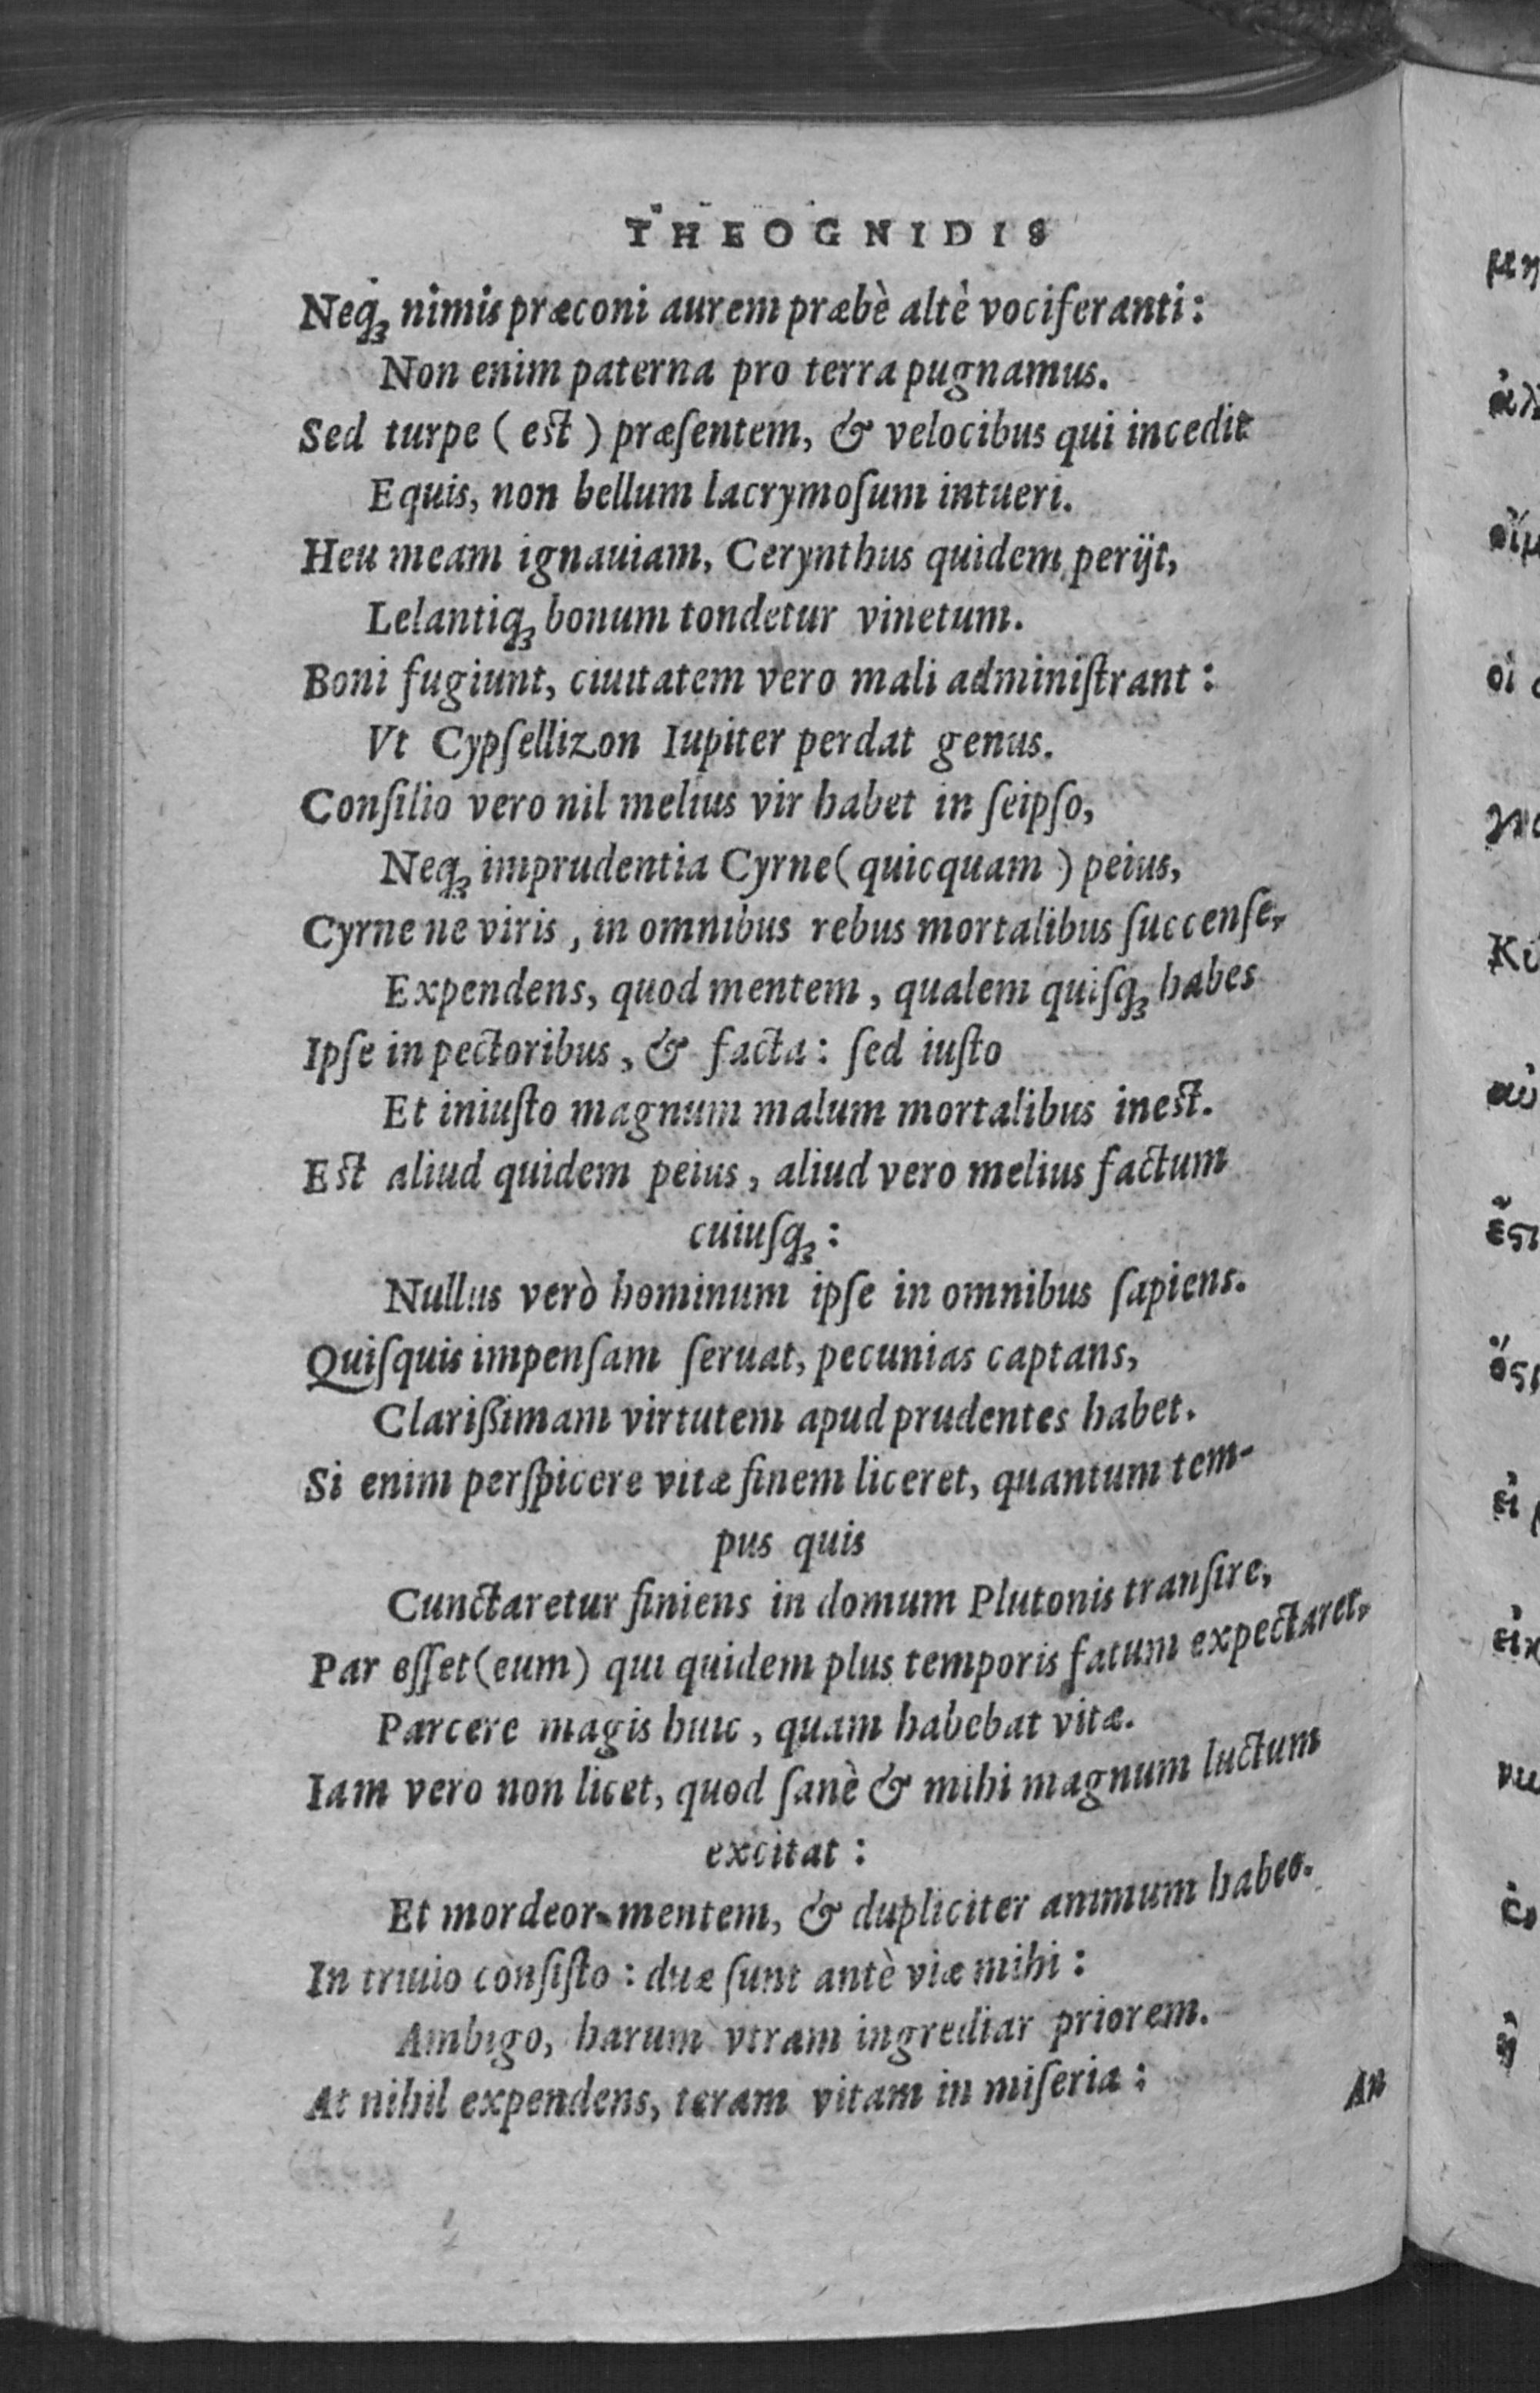 THEOGNIDIS
Neqꝫ nimis præconi aurem præbè altè vociferanti:
Non enim paterna pro terra pugnamus.
Sed turpe (est) præſentem, & velocibus qui incedit
Equis, non bellum lacrymoſum intueri.
Heu meam ignauiam, Cerynthus quidem perijt,
Lelantiqꝫ bonum tondetur vinetum.
Boni fugiunt, ciuitatem vero mali adminiſtrant:
Vt Cypſellizon Iupiter perdat genus.
Conſilio vero nil melius vir habet in ſeipſo,
Neqꝫ imprudentia Cyrne (quicquam) peius,
Cyrne ne viris, in omnibus rebus mortalibus ſuccenſe,
Expendens, quod mentem, qualem quiſqꝫ habes
Ipſe in pectoribus, & facta: ſed iuſto
Et iniuſto magnum malum mortalibus inest.
Est aliud quidem peius, aliud vero melius factum
cuiuſqꝫ:
Nullus verò hominum ipſe in omnibus ſapiens.
Quiſquis impenſam ſeruat, pecunias captans,
Clarißimam virtutem apud prudentes habet.
Si enim perſpicere vitæ finem liceret, quantum tem-
pus quis
Cunctaretur finiens in domum Plutonis tranſire,
Par eſſet (eum) qui quidem plus temporis fatum expectaret,
Parcere magis huic, quam habebat vitæ.
Iam vero non licet, quod ſanè & mihi magnum luctum
excitat:
Et mordeor mentem, & dupliciter animum habeo.
In triuio conſiſto: duæ ſunt antè viæ mihi:
Ambigo, harum vtram ingrediar priorem.
At nihil expendens, teram vitam in miſeria:
An